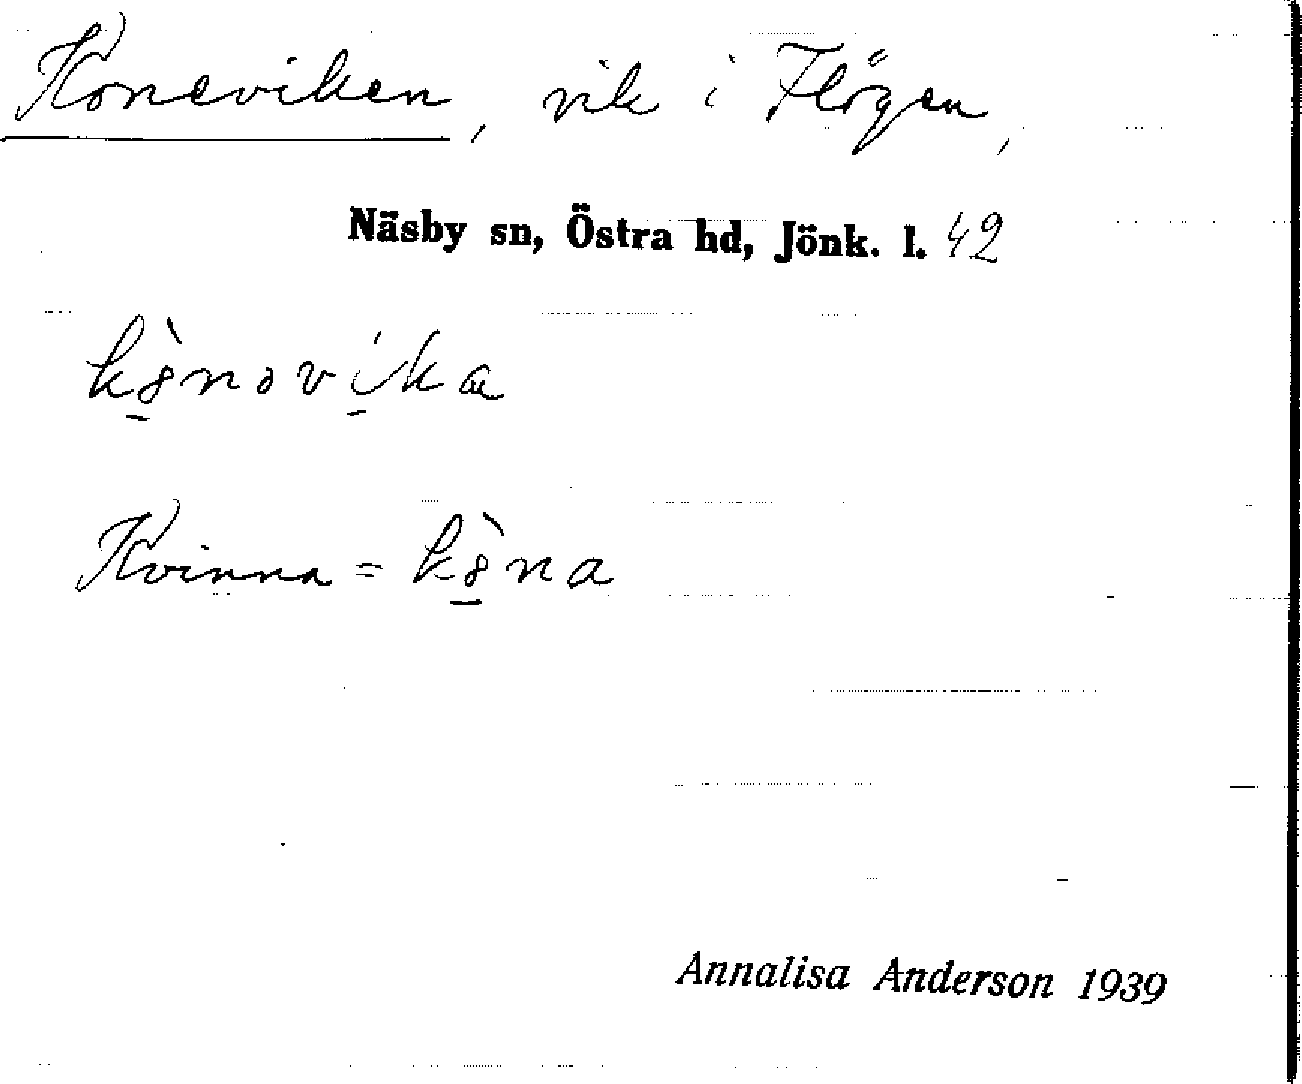 Koneviken, vik i Flögen,
Näsby sn, Östra hd, Jönk. l. 42
k8̠̀nəvi̠ka
Kvinna = k8̠̀na
Annalisa Anderson 1939